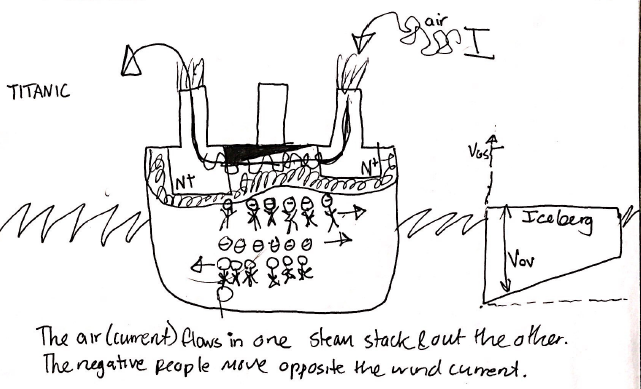 air
I
TITANIC
N+
N+
VGS
Iceberg
VOV
The air (current) flows in one steam stack & out the other.
The negative people move opposite the wind current.